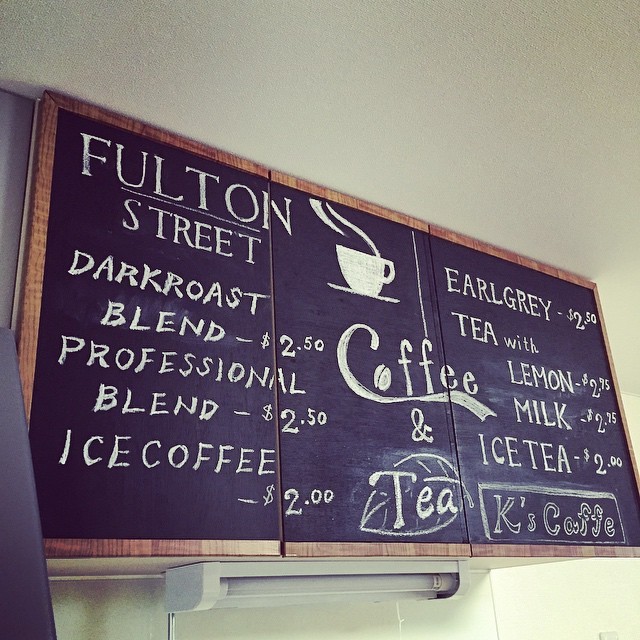 FULTON
STREET
DARKROAST
BLEND - $2.50
PROFESSIONAL
BLEND - $2.50
ICECOFFEE
- $2.00
Coffee
&
Tea
EARLGREY - $2.50
TEA with
LEMON - $2.75
MILK - $2.75
ICE TEA - $2.00
K's Caffe